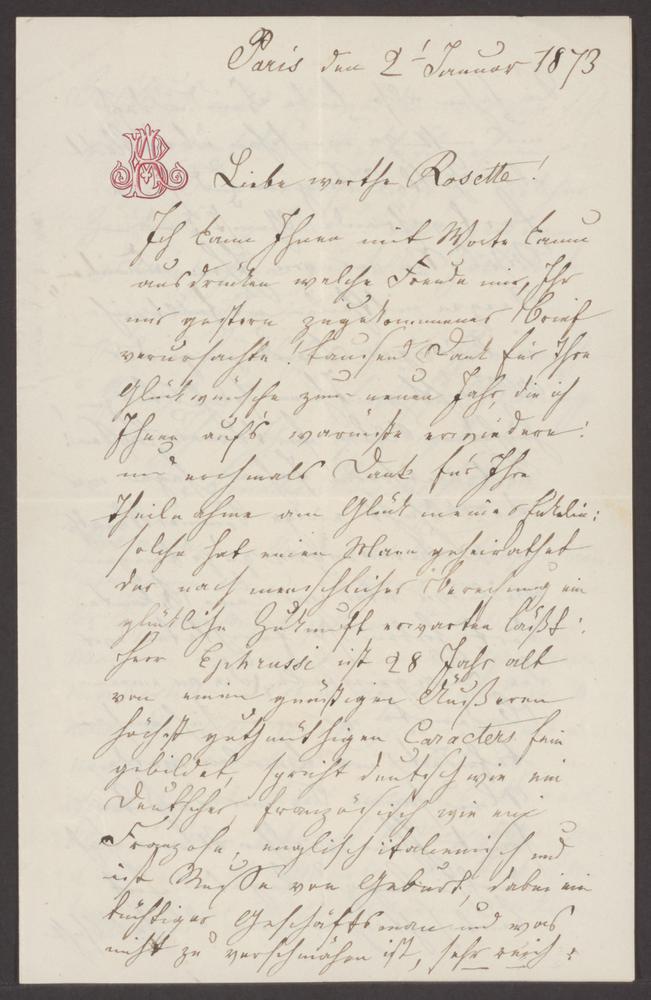 Paris den 2t Januar 1873
Liebe werthe Rosette!
Ich kann Ihnen mit Worte kaum
ausdrücken welche Freude mir, Ihr
mir gestern zugekommener Brief
verursachte! tausend Dank für Ihre
Glückwünsche zum neuen Jahr, die ich
Ihnen aufs wärmste erwiedere!
und nochmals Dank für Ihre
Theilnahme am Glück meiner Enkelin:
solche hat einen Mann geheirathet
der nach menschlicher Berechnung ein
glückliche Zukunft erwarten läßt!
Herr Ephrussi ist 28 Jahr alt
von einem günstigen Äußeren
höchst guthmüthigen Caracters fein
gebildet, spricht deutsch wie ein
Deutscher, französisch wie ein
Franzose, englisch italienisch und
ist Russe von Geburt, dabei ein
tüchtiger Geschäftsman und was
nicht zu verschmähen ist, sehr reich: